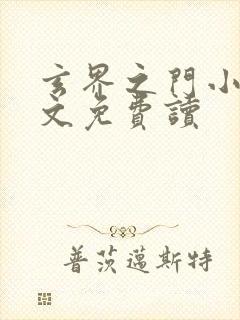 玄界之門小
文免費讀
普茨邁斯特